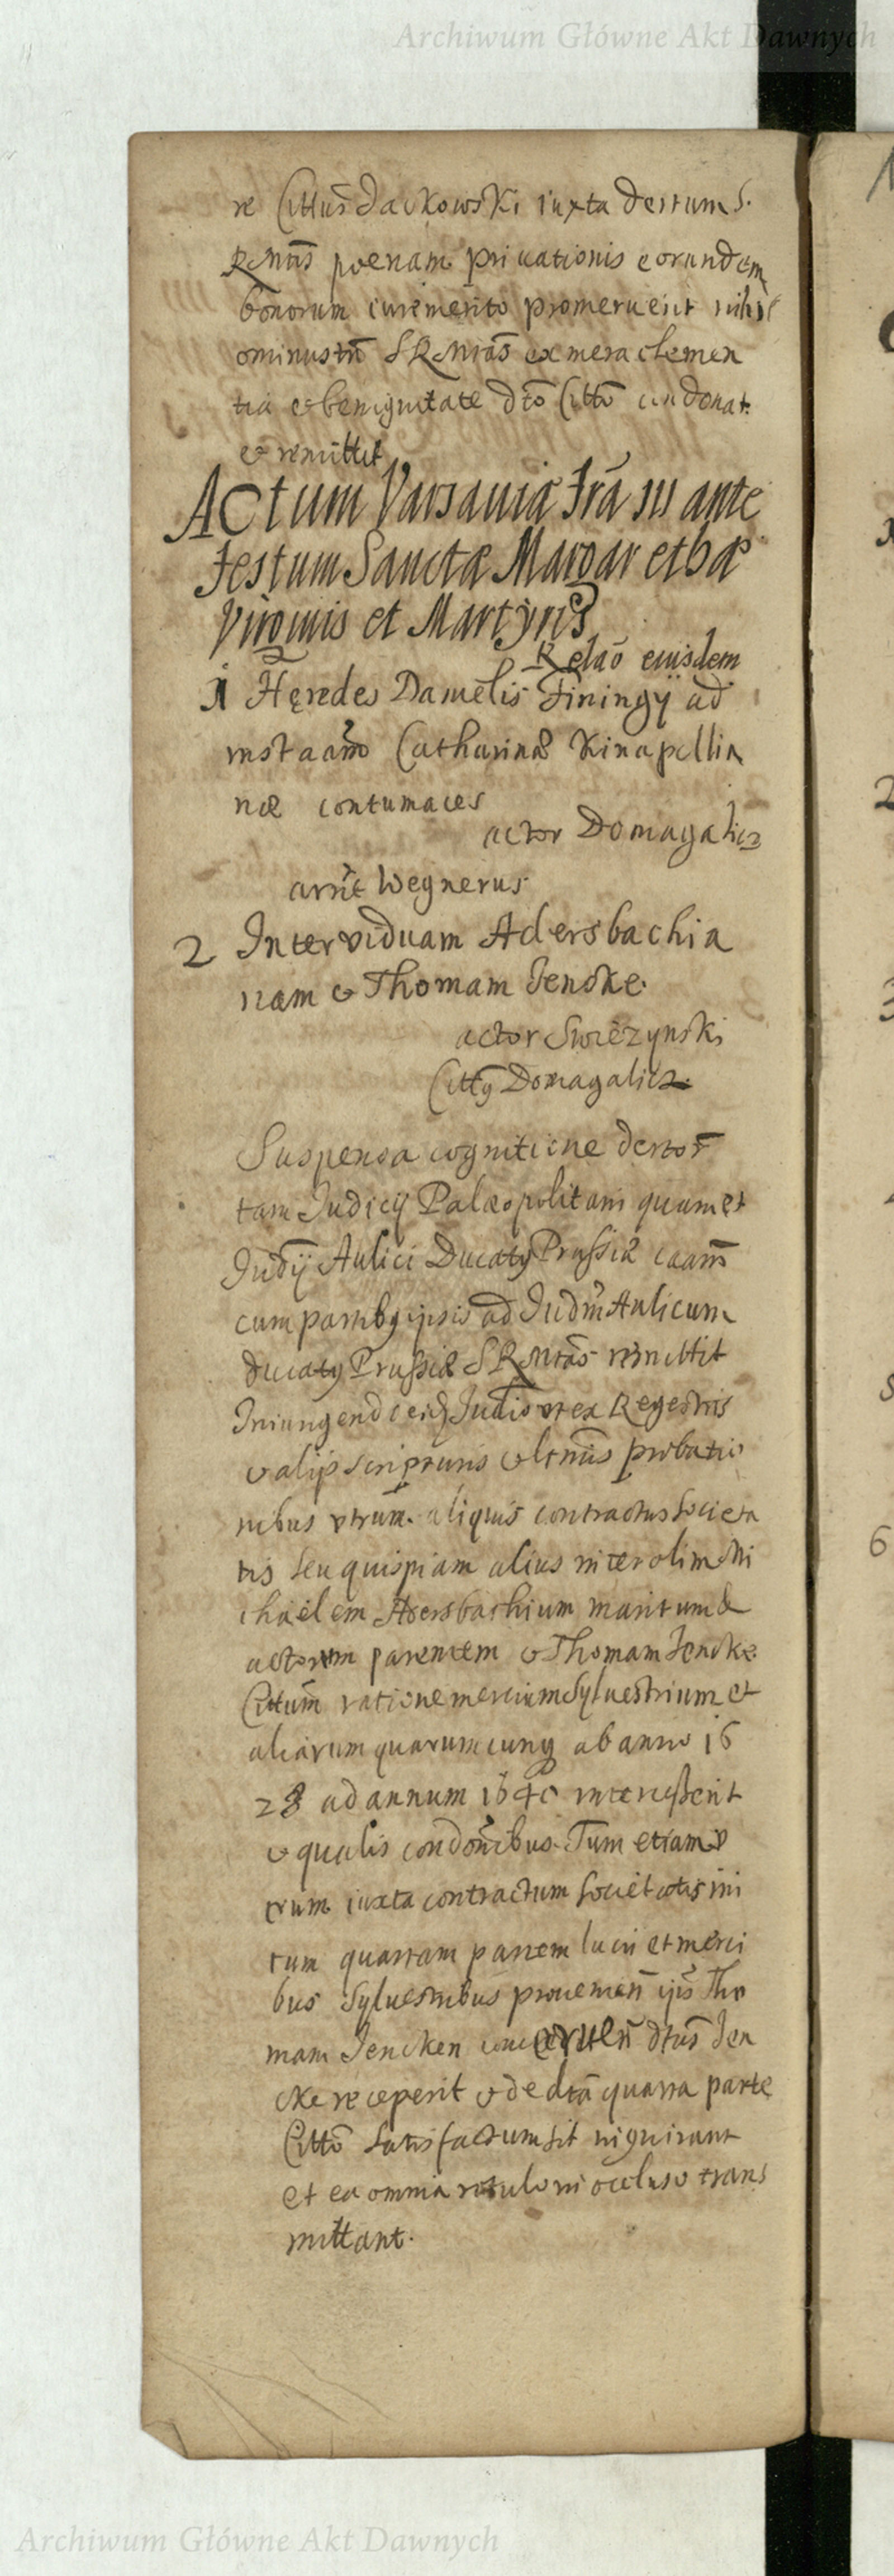 Archiwum Główne Akt Dawnych
re Cittus Dackowski iuxta decretum S.
RMtis poenam priuationis eorundem
bonorum iuremerito promeruerit nihil
ominus tn SRMtas ex mera clemen
tia & benignitate dto Citto condonat
& remittit
Actum Varsauiæ fria III ante
festum Sanctæ Margarethæ
Virginis et Martyris
Relaō eiusdem
1 Hęredes Danielis Finingij ad
instaām Catharinæ Kinapellia
næ contumaces
actor Domagalicz
arrīt Wegnerus
2 Inter viduam Adersbachia
nam & Thomam Jencke.
actor Swiezynski
Citty Domagalicz.
Suspensa cognitione decretor
tam Judicij Palæopolitani quam et
Judij Aulici Ducatꝯ Prussiæ caām
cum partibꝯ ipsis ad Judm Aulicum
ducatꝯ Prussiæ SRMtas remittit
Iniungendo eidē Judio vt ex Regestris
& alijs scripturis & ltimis probatio
nibus vtrum aliquis contractus Societa
tis seu quispiam alius inter olim Mi
chaelem Adersbachium maritum &
actorum parentem & Thomam Jencke
Cittum ratione mercium Syluestrium et
aliarum quarumcunq ab anno 16
28 ad annum 1640 intercesserit
& qualis condonibus. Tum etiam v
trum iuxta contractum Societatis ini
tum quartam partem lucri et merci
bus Syluestribus prouenien ips Tho
mam Jencken concernen dtus Jen
cke receperit & de dta quarta parte
Citto satisfactum sit inquirant
et ea omnia rotulo in occluso trans
mittant.
2
3
6
Archiwum Główne Akt Dawnych